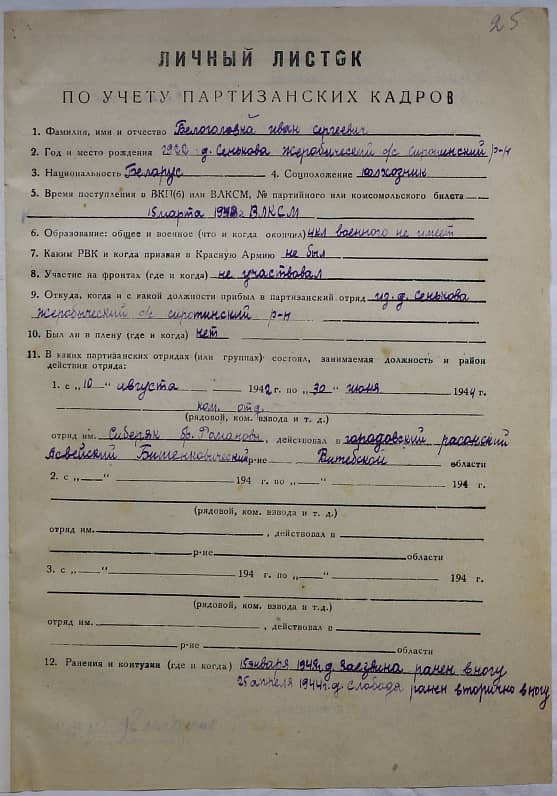 25
ЛИЧНЫЙ ЛИСТОК
ПО УЧЕТУ ПАРТИЗАНСКИХ КАДРОВ
1. Фамилия, имя и отчество Белоголовка иван сергеевич
2. Год и место рождения д. Сенькова жеробический с/с сиротинский р-н
3. Национальность Беларус 4. Соцположение колхозник
5. Время поступления в ВКП(б) или ВЛКСМ, № партийного или комсомольского билета
15 марта ВЛКСМ
6. Образование: общее и военное (что и когда окончил) военного не имеет
7. Каким РВК и когда призван в Красную Армию не был
8. Участие на фронтах (где и когда) не участвовал
9. Откуда, когда и с какой должности прибыл в партизанский отряд из д. Сенькова
жеробыческий с/с сиротинский р-н
10. Был ли в плену (где и когда) нет
11. В каких партизанских отрядах (или группах) состоял, занимаемая должность и район
действия отряда:
1. с „10" августа 1942 г. по „30" июня 1944 г.
ком. отд.
(рядовой, ком. взвода и т. д.)
отряд им. Сибиряк бр. Романова, действовал в городовский расонский
Асвейский Бишенковический р-не Витебской области
2. с „—" 194 г. по „—" 194 г.
(рядовой, ком. взвода и т. д.)
отряд им. , действовал в
р-не области
3. с „—" 194 г. по „—" 194 г.
(рядовой, ком. взвода и т.д.)
отряд им. , действовал в
р-не области
12. Ранения и контузии (где и когда) 15 января д. ранен в ногу
25 апреля 1944 г. д. Слобода ранен вторично в ногу